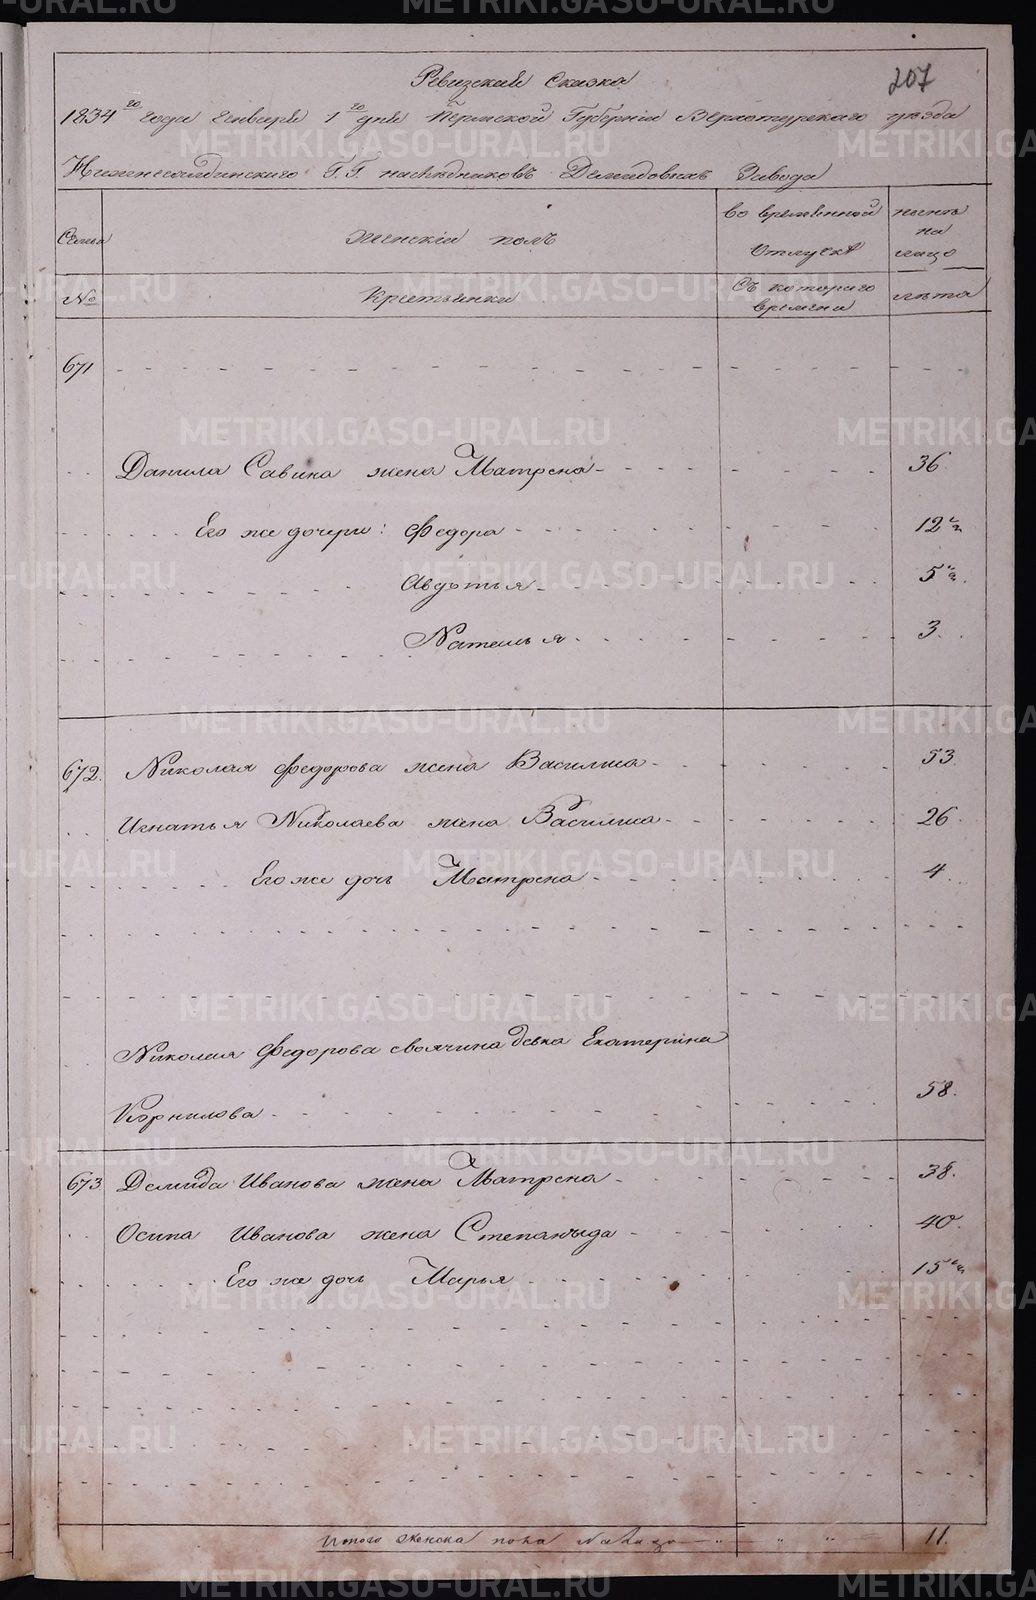 207
Ревизская Сказка
1834го года Генваря 1го дня Пермской Губернiи Верхотурскаго уезда
Нижнесалдинскаго Г.Г. наследниковъ Демидовыхъ Завода
Семьи Женскiй полъ во временной Отлучке ныне на лицо
№ Крестьянки Съ котораго времени лета
671
Данила Савина жена Матрена 36.
Его же дочери: Федора 12 ½
Авдотья 5 ½
Наталья 3.
672. Николая Федорова жена Василиса 53.
Игнатья Николаева жена Василиса 26.
Его же дочь Матрена 4
Николая Федорова своячина девка Екатерина
Корнилова 58.
673 Демида Иванова жена Матрена 38.
Осипа Иванова жена Степанида 40.
Его же дочь Марья 15 ½
Итого женска пола на лицо 11.
METRIKI.GASO-URAL.RU